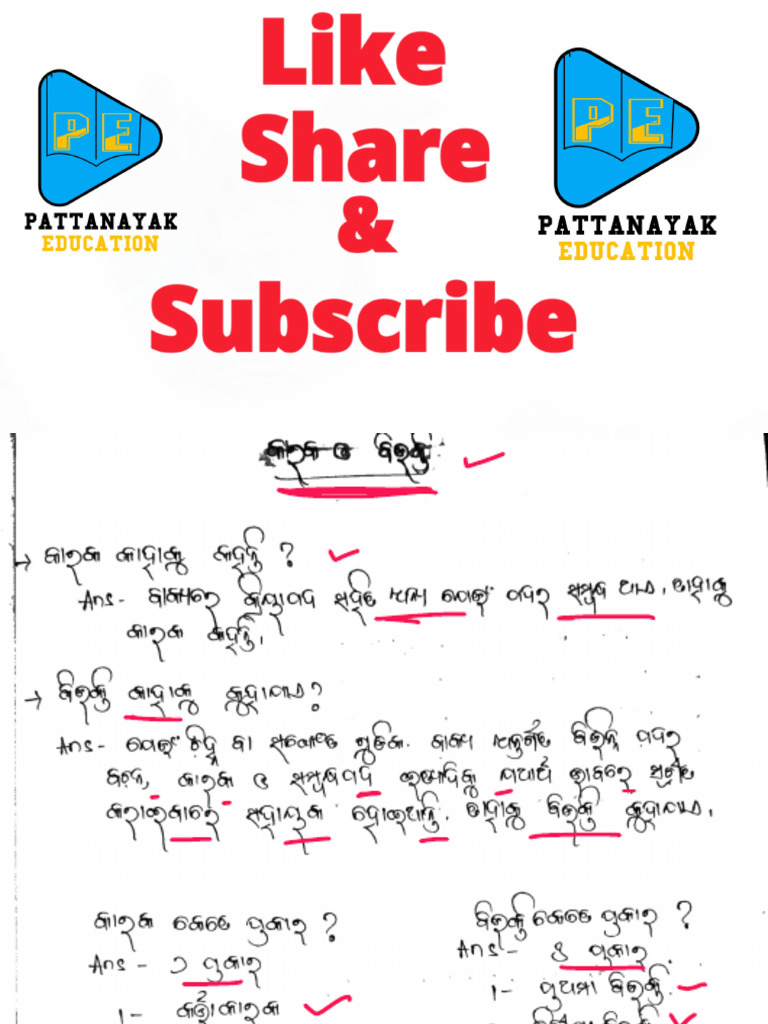 Like
Share
&
Subscribe
PE
PATTANAYAK
EDUCATION
PE
PATTANAYAK
EDUCATION
କାରକ ଓ ବିଭକ୍ତି
→ କାରକ କାହାକୁ କହନ୍ତି ?
Ans - ବାକ୍ୟରେ କ୍ରିୟାପଦ ସହିତ ଅନ୍ୟ ଯେଉଁ ପଦର ସମ୍ପର୍କ ଥାଏ, ତାହାକୁ
କାରକ କହନ୍ତି,
→ ବିଭକ୍ତି କାହାକୁ କୁହାଯାଏ ?
Ans - ଯେଉଁ ଚିହ୍ନ ବା ସଂକେତ ଗୁଡିକ ବାକ୍ୟ ଅନ୍ତର୍ଗତ ବିଭିନ୍ନ ପଦର
କାରକ ଓ ସମ୍ବନ୍ଧପଦ ଇତ୍ୟାଦିକୁ ଯଥାର୍ଥ ଭାବରେ
କରାଇବାରେ ସହାୟକ ହୋଇଥାନ୍ତି, ତାହାକୁ ବିଭକ୍ତି କୁହାଯାଏ,
କାରକ କେତେ ପ୍ରକାର ?
Ans - ୬ ପ୍ରକାର
୧ - କର୍ତ୍ତାକାରକ
ବିଭକ୍ତି କେତେ ପ୍ରକାର ?
Ans - ପ୍ରକାର
୧ - ପ୍ରଥମା ବିଭକ୍ତି